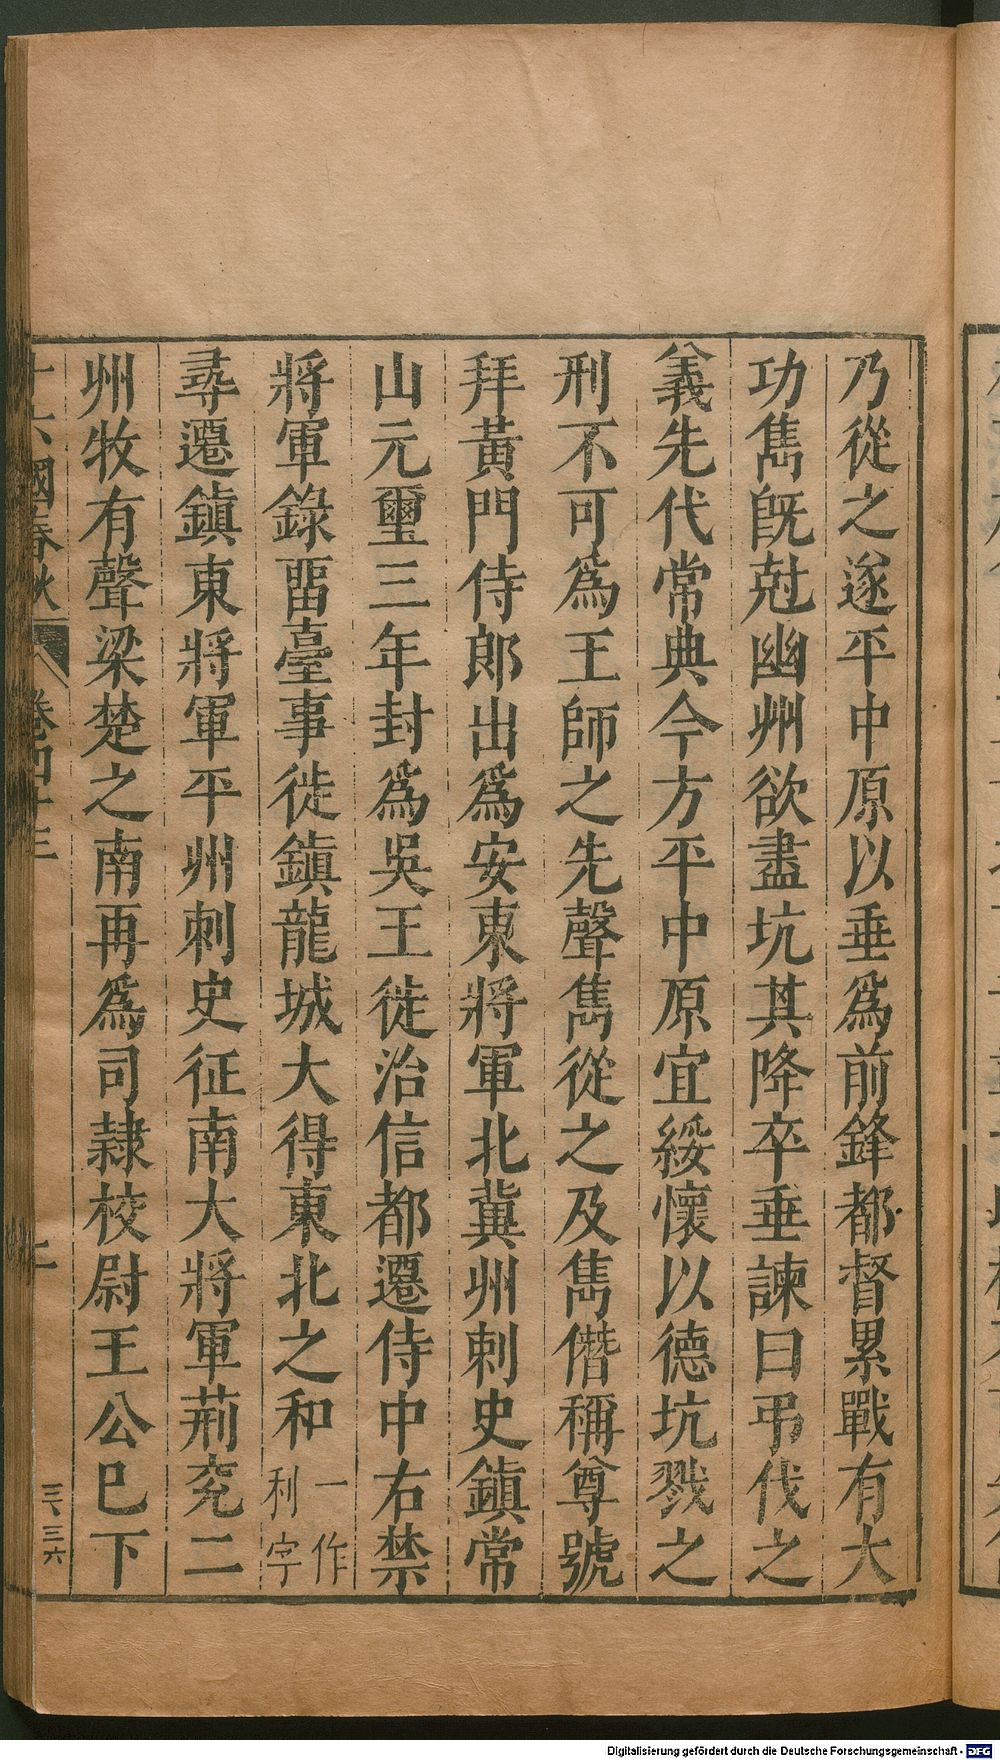 乃從之遂平中原以垂爲前鋒都督累戰有大
功雋旣尅幽州欲盡坑其降卒垂諫曰弔伐之
義先代常典今方平中原宜綏懷以德坑戮之
刑不可爲王師之先聲雋從之及雋僭稱尊號
拜黃門侍郎出爲安東將軍北冀州刺史鎮常
山元璽三年封爲吳王徙治信都遷侍中右禁
將軍錄畱臺事徙鎮龍城大得東北之和一作利字
尋遷鎮東將軍平州刺史征南大將軍荊兖二
州牧有聲梁楚之南再爲司隸校尉王公巳下
十六國春秋 卷四十三
Digitalisierung gefördert durch die Deutsche Forschungsgemeinschaft - DFG